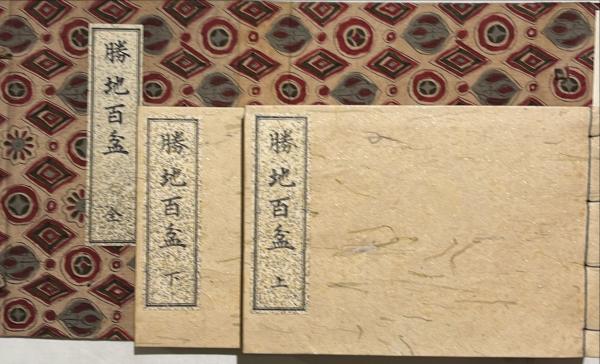 勝地百盆 上
勝地百盆 下
勝地百盆 全